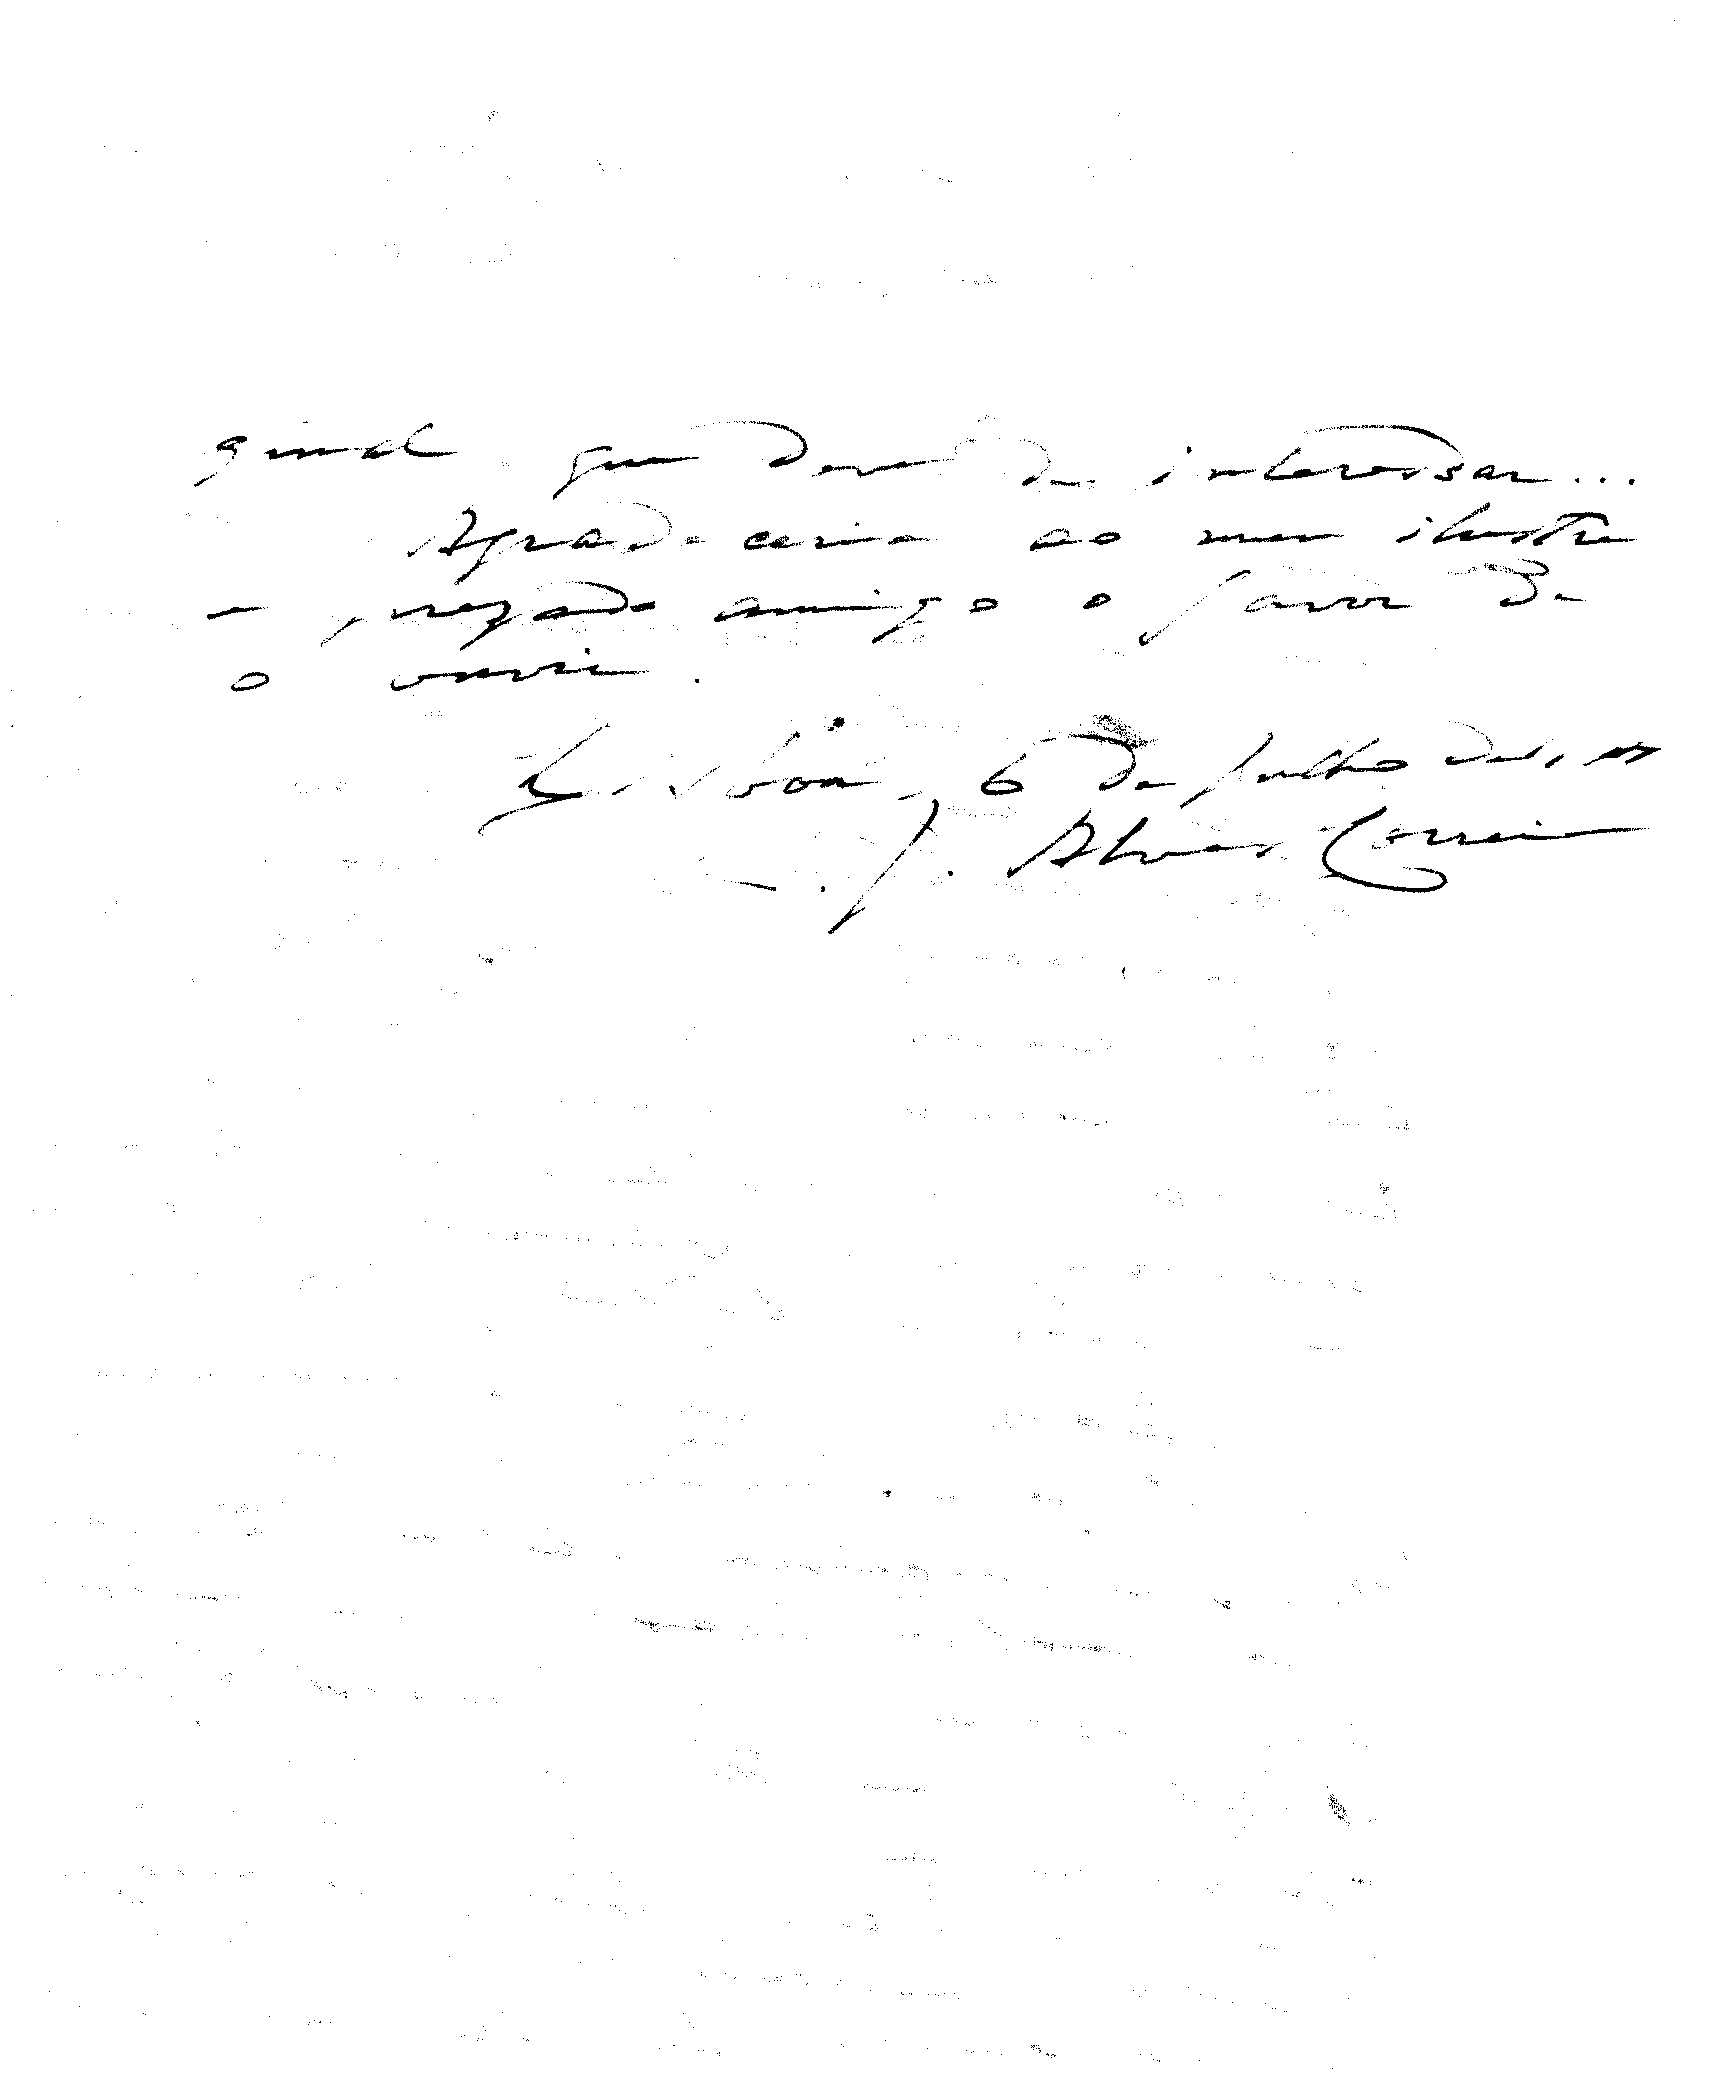 ginal que deve de interessar...
Agradeceria ao meu ilustre
e prezado amigo o favor de
o ouvir.
Lisboa, 6 de Julho de
J. Alves Correia